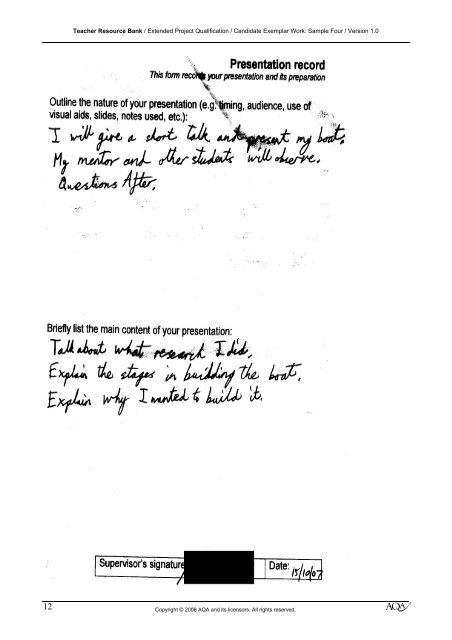 Teacher Resource Bank / Extended Project Qualification / Candidate Exemplar Work: Sample Four / Version 1.0
Presentation record
This form records your presentation and its preparation
Outline the nature of your presentation (e.g. timing, audience, use of
visual aids, slides, notes used, etc.):
I will give a short talk and present my boat.
My mentor and other students will observe.
Questions After.
Briefly list the main content of your presentation:
Talk about what research I did,
Explain the stages in buildding the boat.
Explain why I wanted to build it.
Supervisor's signature
Date: 15/10/07
12
Copyright © 2008 AQA and its licensors. All rights reserved.
AQA